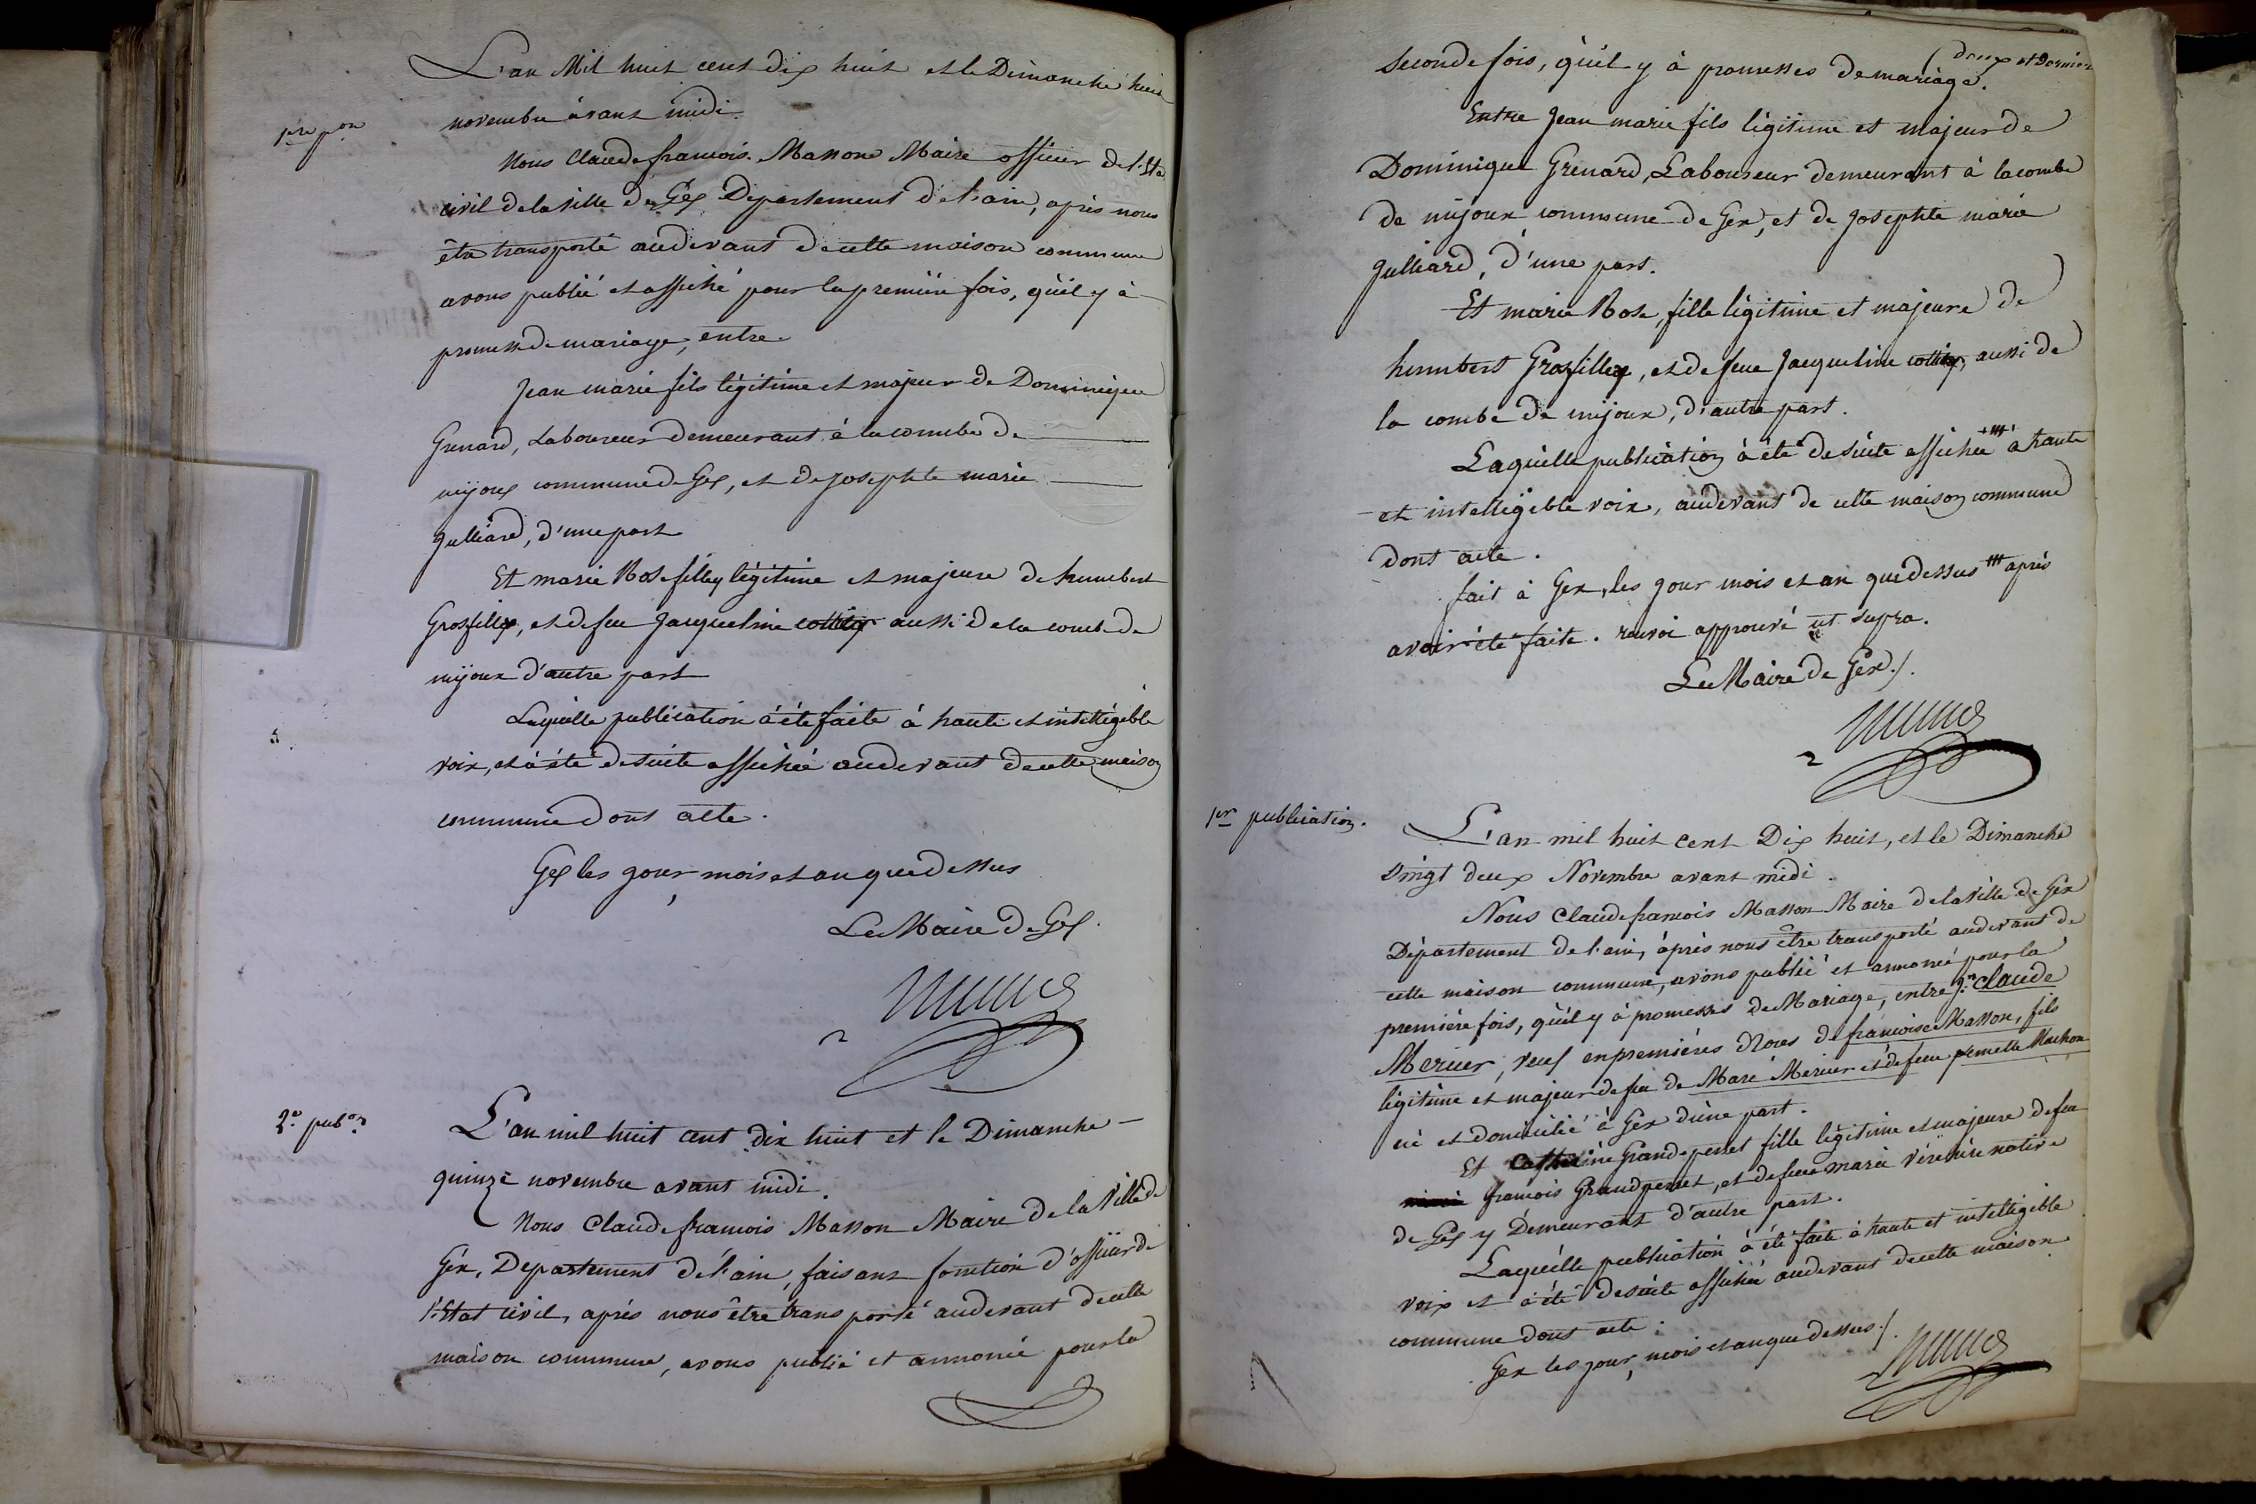 L'an Mil huit cent dix huit et le Dimanche huit
novembre avant midi.
1re pon
Nous Claude francois Masson Maire officier de l'Eta
civil de la ville de Gex Departement de l'ain, après nous
être transporté audevant de cette maison commune
avons publié et affiché pour la première fois, qu'il y à
promesse de mariage, entre
Jean marie fils légitime et majeur de Dominique
Grenard, Laboureur demeurant à la combe de
mijoux commune de Gex, et de Josephte marie
Julliard, d'une part
Et marie Rose fille légitime et majeure de humbert
Grosfillex, et de feu Jacqueline aussi de la combe de
mijoux d'autre part
Laquelle publication à été faite à haute et intelligible
voix, et à été de suite affichée audevant de cette maison
commune dont acte.
Gex les jour, mois et an que dessus
Le Maire de Gex.
2e pubon
L'an mil huit cent dix huit et le Dimanche
quinze novembre avant midi.
Nous Claude francois Masson Maire de la Ville de
Gex, Departement de l'ain, faisant fonction d'officier de
l'Etat civil, après nous être transporté audevant de cette
maison commune, avons publié et annoncé pour la
(deux et dernier
seconde fois, qu'il y à promesses de mariage.
Entre Jean marie fils légitime et majeur de
Dominique Grenard, Laboureur demeurant à la combe
de mijoux commune de Gex, et de Josephte marie
Julliard, d'une part.
Et marie Rose, fille légitime et majeure de
humbert Grosfillex, et de feue Jacqueline aussi de
la combe de mijoux, d'autre part.
Laquelle publication à été de suite affichée à haute
et intelligible voix, audevant de cette maison commune
dont acte.
fait à Gex, les jour mois et an que dessus après
avoir été faite. renvoi approuvé ut supra.
Le Maire de Gex./.
1er publication.
L'an mil huit cent Dix huit, et le Dimanche
vingt deux Novembre avant midi.
Nous Claude francois Masson Maire de la Ville de Gex
Département de l'ain, après nous être transporté audevant de
cette maison commune, avons publié et annoncé pour la
première fois, qu'il y à promesses de Mariage, entre jn claude
Mercier, veuf en premières noces de francoise Masson, fils
légitime et majeur de feu de Marc Mercier et de feue pernette Machon
né et domicilié à Gex d'une part.
Et Catherine Grandperret fille légitime et majeure de feu
francois Grandperret, et de feue marie native
de Gex y Demeurant d'autre part.
Laquelle publication à été faite à haute et intelligible
voix et à été de suite affichée audevant de cette maison
commune dont acte:
Gex les jour, mois et an que dessus./.